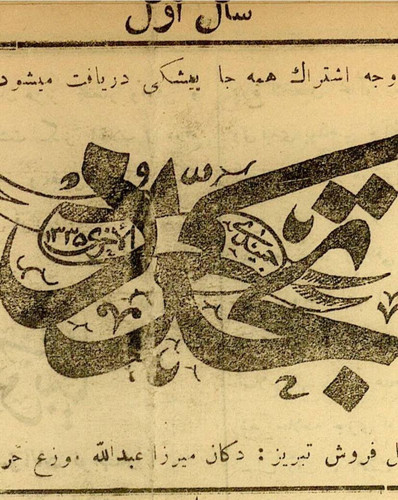 سال اول
وجه اشتراك همه جا پیشكی دریافت میشود
تجدد
الاخری ۱۳۳۵
فروش تبریز : دكان میرزا عبدالله موزع